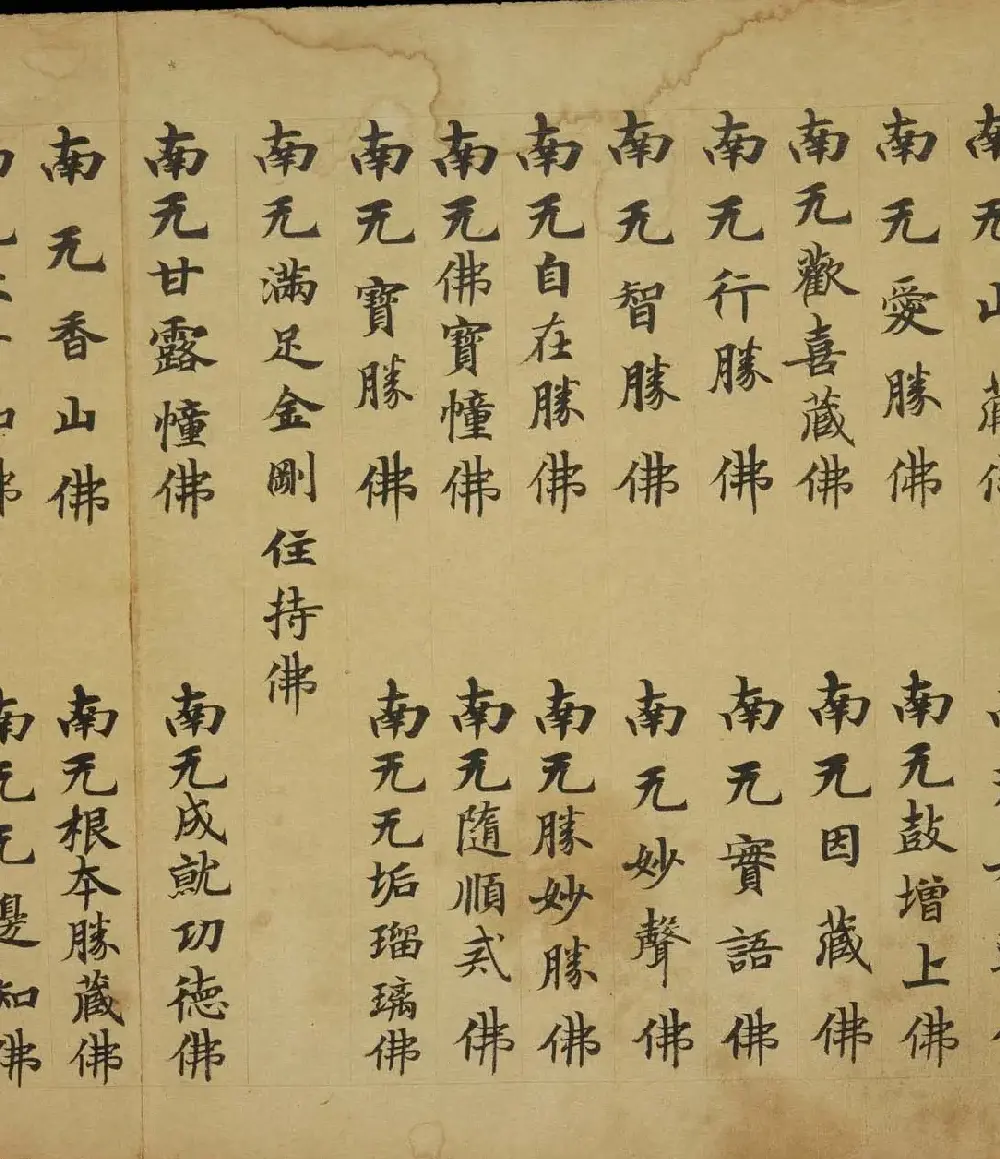 南无山藏佛
南无愛勝佛 南无鼓增上佛
南无歡喜藏佛 南无因藏佛
南无行勝佛 南无實語佛
南无智勝佛 南无妙聲佛
南无自在勝佛 南无勝妙勝佛
南无佛寶幢佛 南无隨順佛
南无寶勝佛 南无无垢瑠璃佛
南无滿足金剛住持佛
南无甘露幢佛 南无成就功德佛
南无香山佛 南无根本勝藏佛
南无无邊知佛